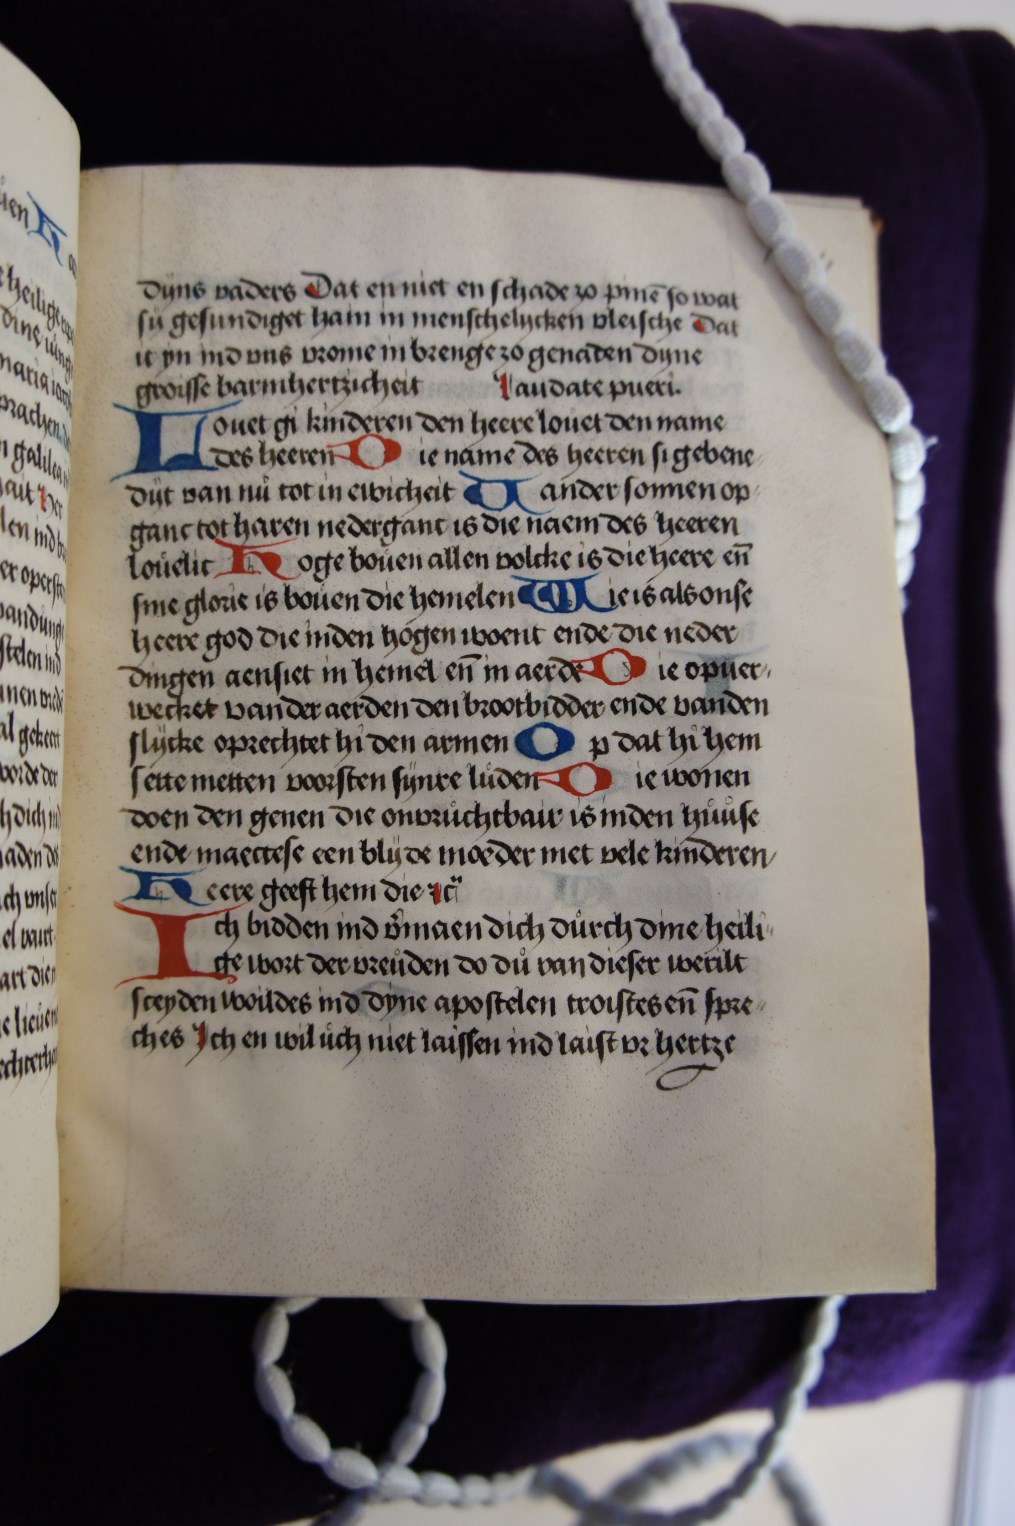 dyns vaders Dat en niet en schade zo pinē so wat
sy gesundiget hain in menschelycken vleische Dat
it yn ind vns vrome in brenge zo genaden dyne
groisse barmhertzicheit laudate pueri.
Louet gi kinderen den heere louet den name
des heeren Die name des heeren si gebene
dijt van nu tot in ewicheit Vander sonnen op
ganc tot haren nedergant is die naem des heeren
louelic Hoge bouen allen volcke is die heere en̄
sine glorie is bouen die hemelen Wie is als onse
heere god die inden hogen woent ende die neder
dingen aensiet in hemel en̄ in aerde Die opuer
wecket vander aerden den brootbidder ende vanden
slycke oprechtet hi den armen Op dat hi hem
sette metten voorsten synre luden Die wonen
doen den genen die onvruchtbair is inden huuse
ende maectese een blijde moeder met vele kinderen
Heere geeft hem die
Ich bidden ind vmaen dich durch dine heili
ge wort der vreuden do du van dieser werilt
sceyden woildes ind dyne apostelen troistes en̄ spre
ches Ich en wil uch niet laissen ind laist vr hertze